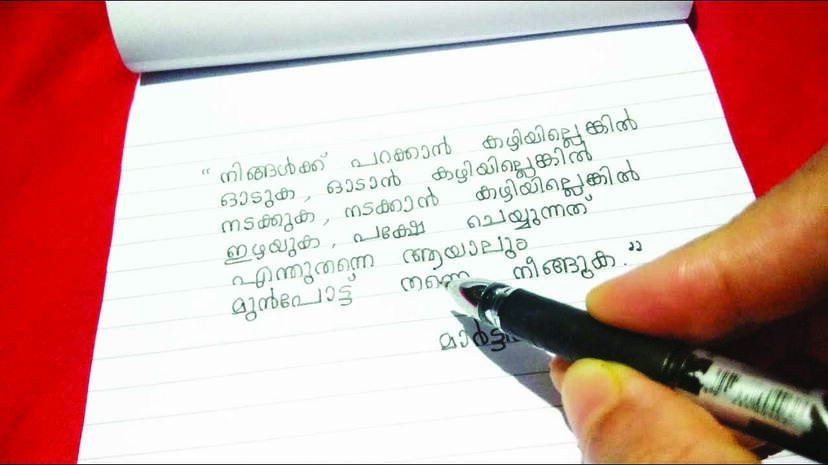 “ നിങ്ങൾക്ക് പറക്കാൻ കഴിയില്ലെങ്കിൽ
ഓടുക , ഓടാൻ കഴിയില്ലെങ്കിൽ
നടക്കുക , നടക്കാൻ കഴിയില്ലെങ്കിൽ
ഇഴയുക , പക്ഷേ ചെയ്യുന്നത്
എന്തുതന്നെ ആയാലും
മുൻപോട്ട് തന്നെ നീങ്ങുക .”